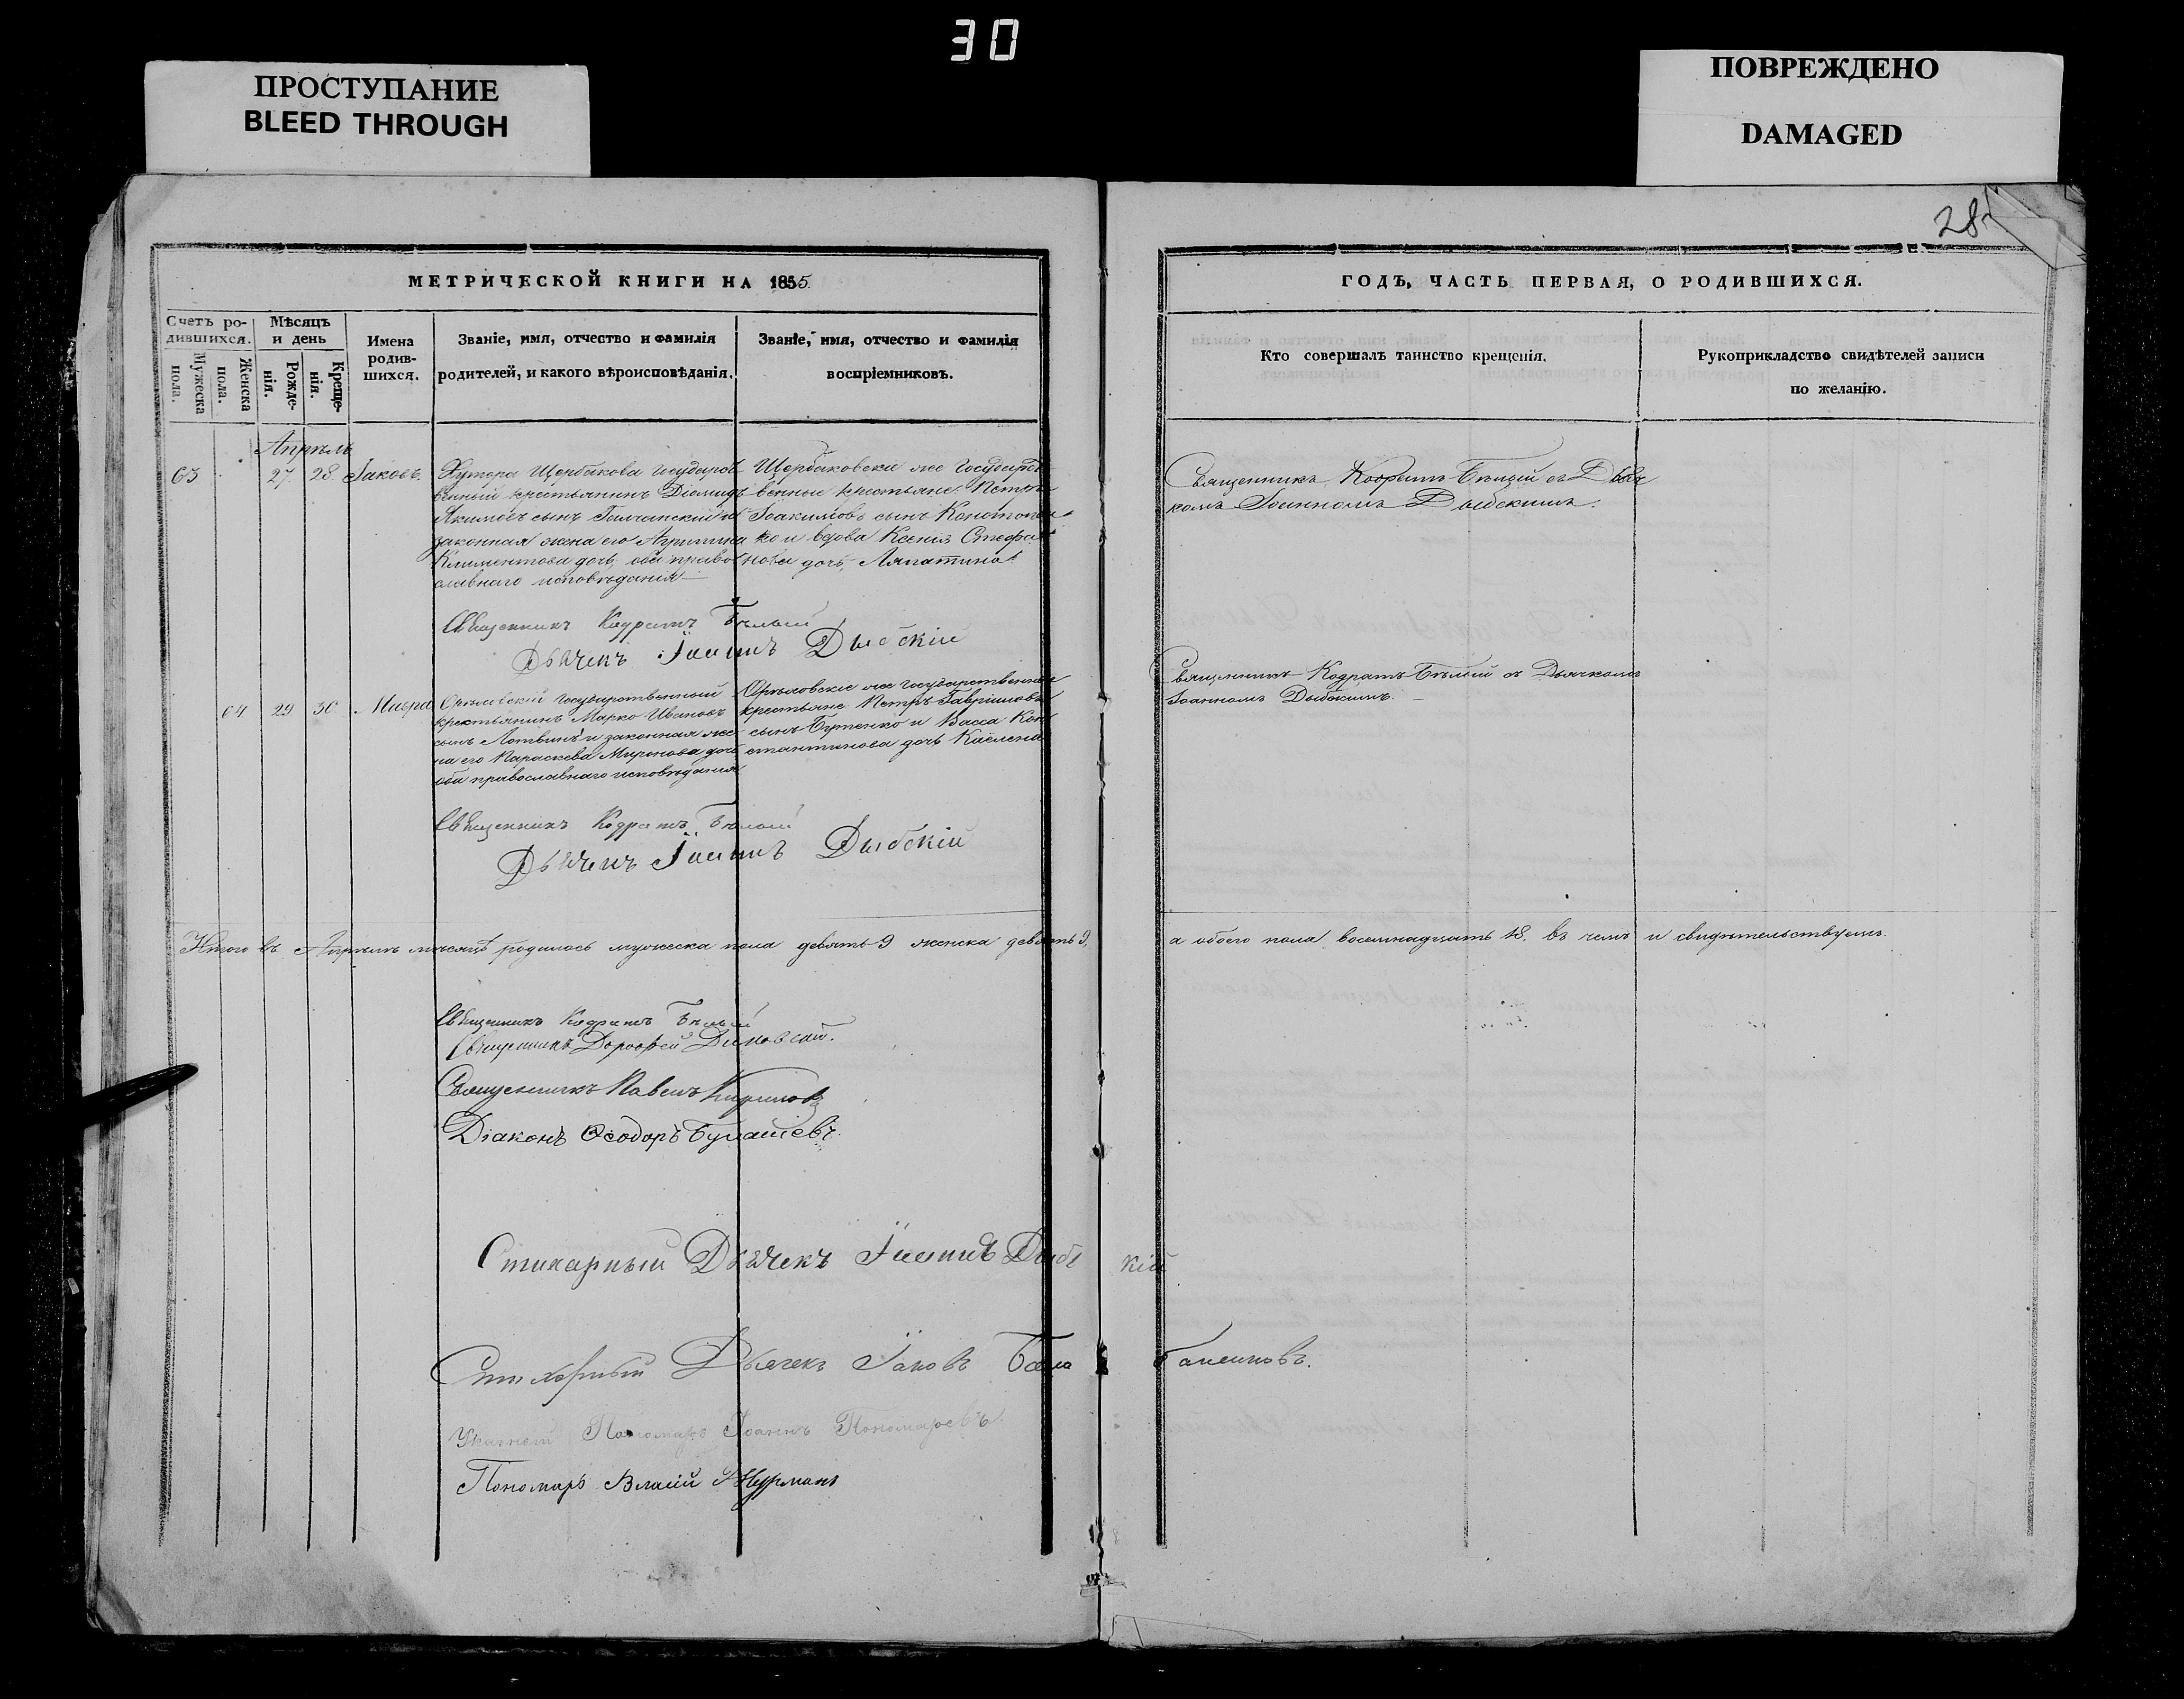 30
ПРОСТУПАНИЕ
BLEED THROUGH
ПОВРЕЖДЕНО
DAMAGED
28
МЕТРИЧЕСКОЙ КНИГИ НА 1855
Счетъ ро-
дившихся.
Мужеска
пола.
Женска
пола.
Мѣсяцъ
и день
Рожде-
нія.
Креще-
нія.
Имена
родив-
шихся.
Званіе, имя, отчество и фамилія
родителей, и какого вѣроисповѣданія.
Званіе, имя, отчество и фамилія
воспріемниковъ.
ГОДЪ, ЧАСТЬ ПЕРВАЯ, О РОДИВШИХСЯ.
Кто совершалъ таинство крещенія.
Рукоприкладство свидѣтелей записи
по желанію.
Апрѣль
63
27
28
Іаковъ
Хутора Щербакова государст
венный крестьянинъ Діомидъ
Якимовъ сынъ
законная жена его
Климентова дочь, оба право
славнаго исповѣданія
Щербаковски же государст
венные крестьяне Петръ
Іоакимовъ сынъ
ко и вдова Ксенія Стефа
нова дочь
Священникъ Кодратъ Бѣлый съ Дьяч
комъ Іоанномъ Дыбскимъ.
Священникъ Кодратъ Бѣлый
Дьячекъ Іоаннъ Дыбскій
64
29
30
Мавра
Орѣловскій государственный
крестьянинъ Марко Ивановъ
сынъ Литвинъ и законная же
на его Параскева Миронова дочь
оба православнаго исповѣданія
Орѣловскіе же государственные
крестьяне Петръ Гавріиловъ
сынъ Бутенко и Васса Кон
стантинова дочь
Священникъ Кодратъ Бѣлый съ Дьячкомъ
Іоанномъ Дыбскимъ.
Священникъ Кодратъ Бѣлый
Дьячекъ Іоаннъ Дыбскій
Итого въ Апрѣлѣ мѣсяцѣ родилось мужеска пола девять 9 женска девять 9.
а обоего пола восемнадцать 18. въ чемъ и свидѣтельствуемъ.
Священникъ Кодратъ Бѣлый
Священникъ Дороѳей
Священникъ Павелъ
Діаконъ Ѳеодоръ Булашевъ.
Стихарный Дьячекъ Іоаннъ Дыбскій
Стихарный Дьячекъ Іаковъ
Указный Пономарь Іоаннъ Пономаревъ.
Пономарь Власій